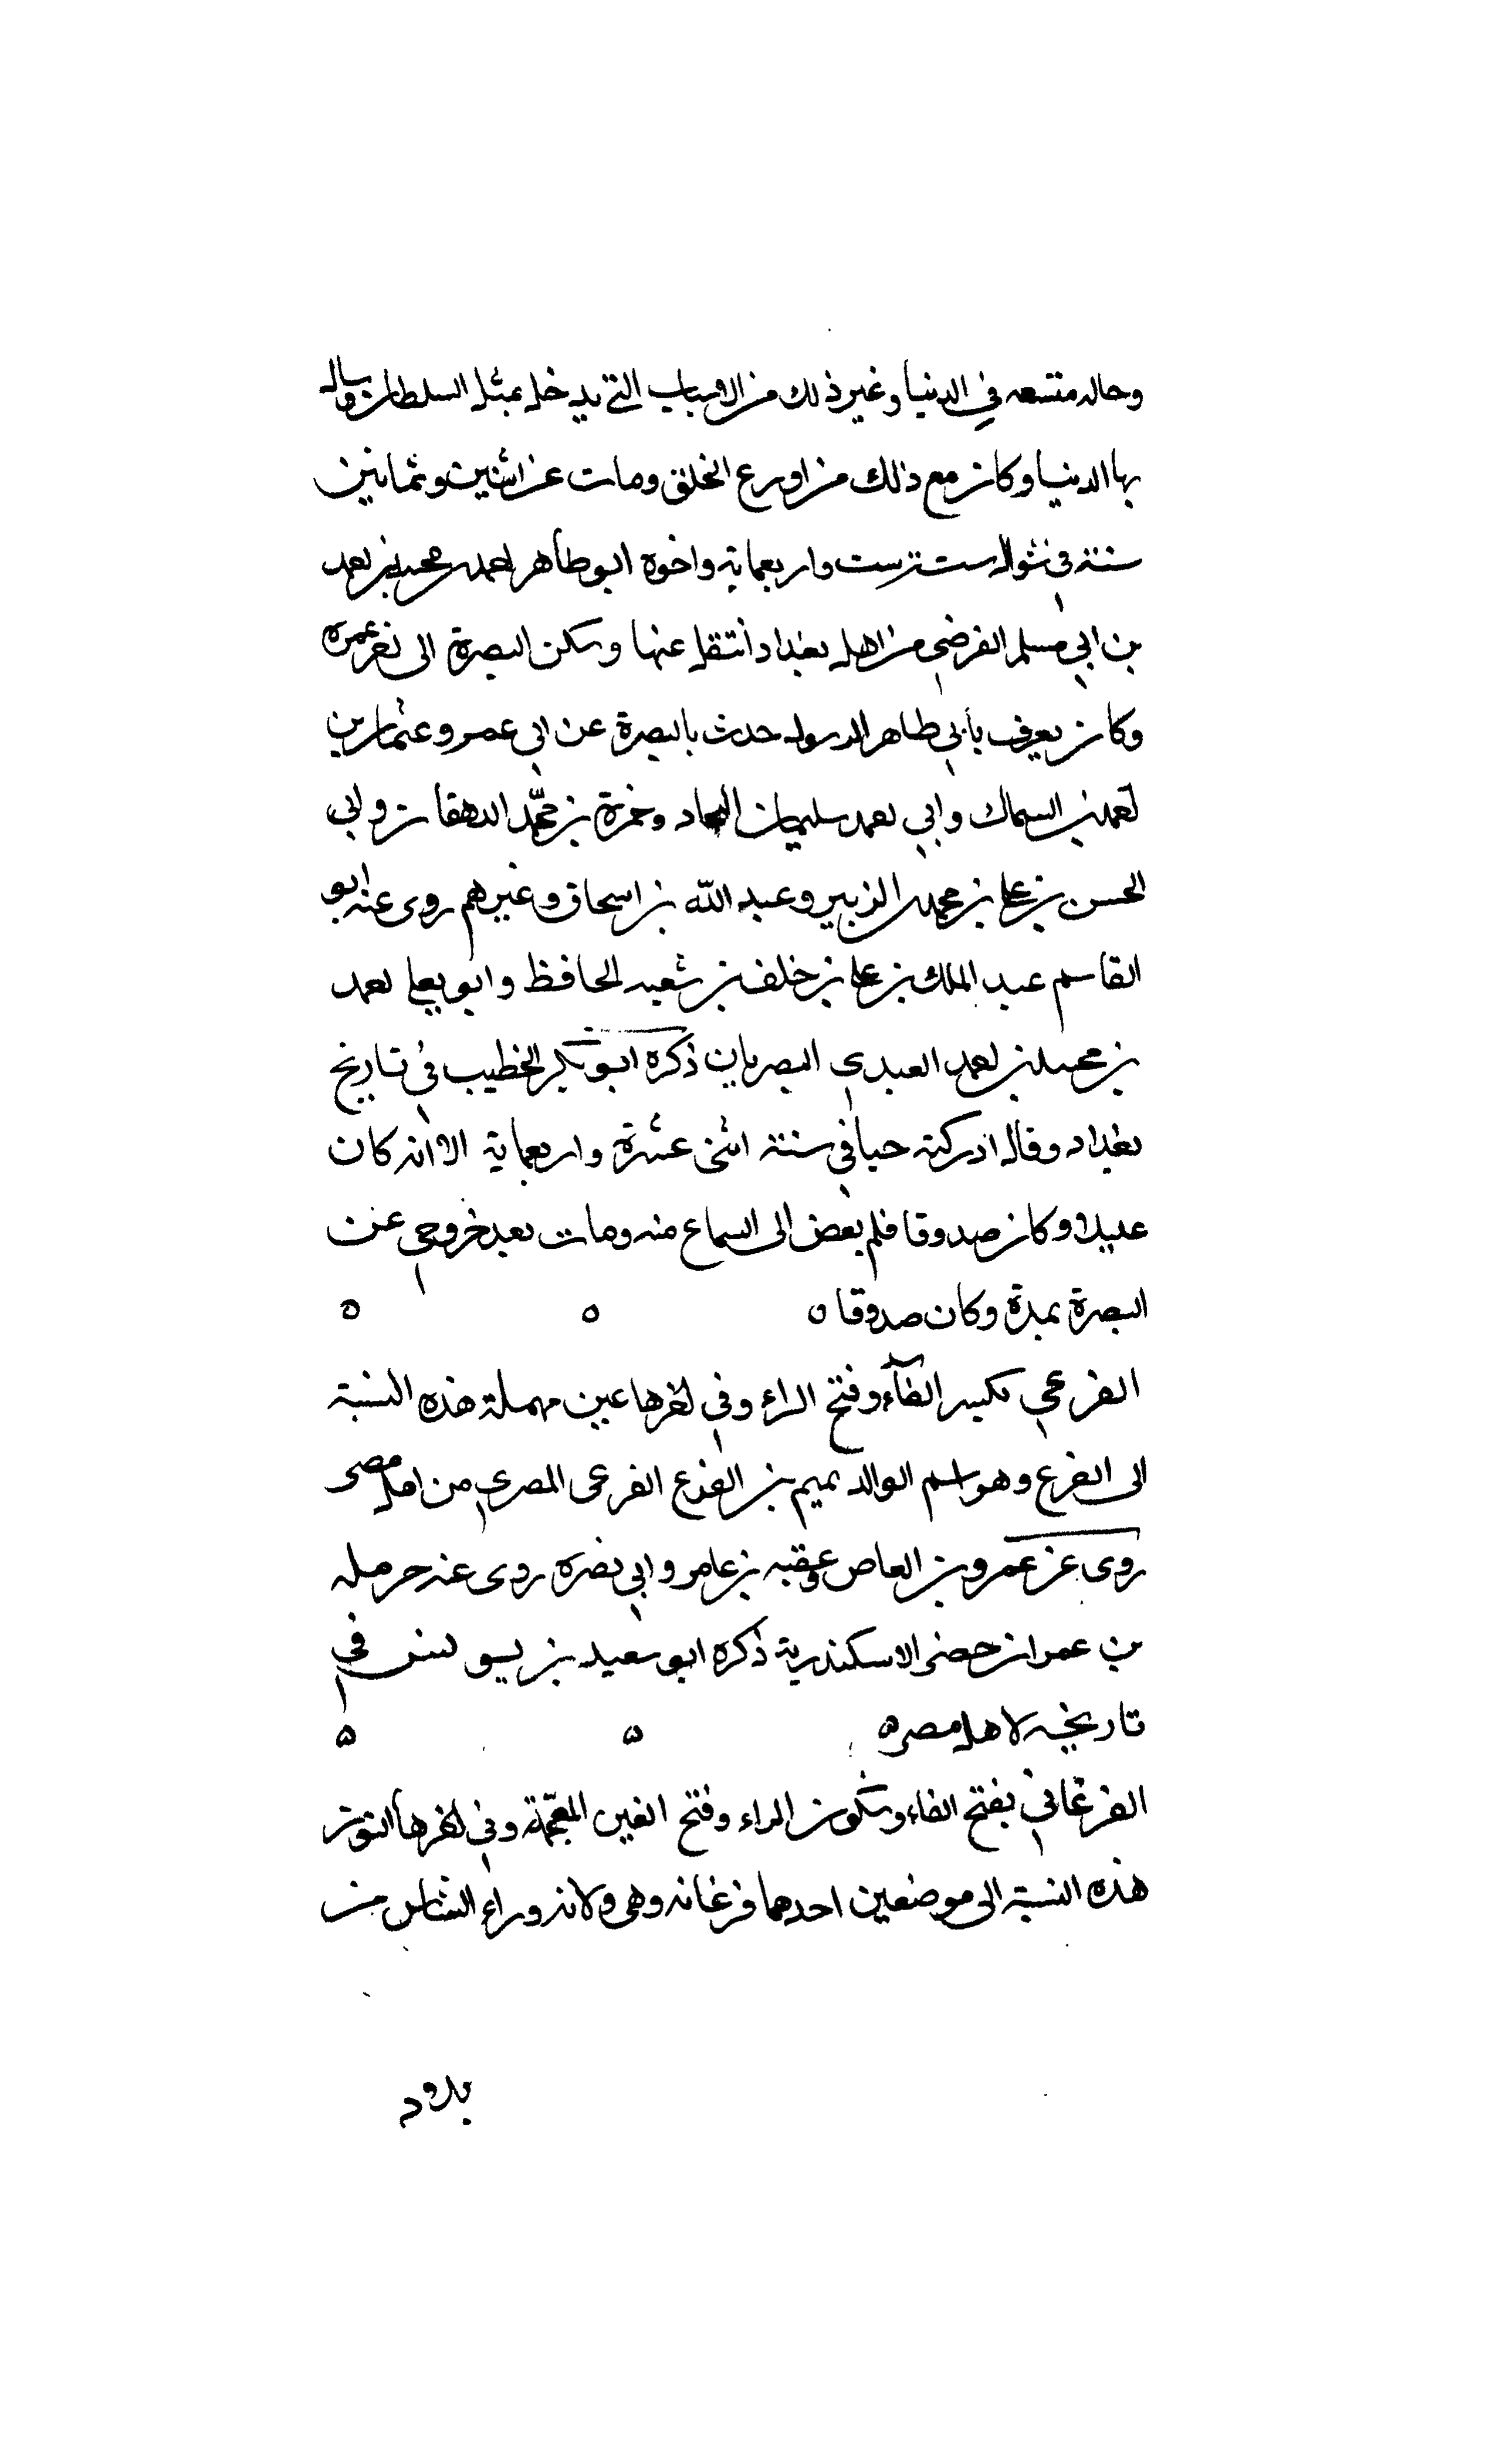 وحاله متسعه في الدنيا وغير ذلك من الاسباب التي يدخل بمثله السلطان وينال
بها الدنيا وكان مع ذلك من اورع الخلق ومات عن اثنين وثمانين
سنة في شوال سنة ست واربعماية واخوه ابو طاهر احمد بن محمد بن احمد
بن ابي مسلم الفرضي من اهل بغداد انتقل عنها وسكن البصرة الى اخر عمره
وكان يعرف بابي طاهر الرسول حدث بالبصرة عن ابي عمرو عثمان بن
احمد بن السماك وابي احمد سليمان النجاد وحمزة بن محمد الدهقان وابي
الحسن بن علي بن محمد الزبير وعبد الله بن اسحاق وغيرهم روى عنه ابو
القاسم عبد الملك بن علي بن خلف بن شعبه الحافظ وابو يعلى احمد
بن محمد بن احمد العبدي البصريان ذكره ابو بكر الخطيب في تاريخ
بغداد وقال ادركته حيا في سنة اثنى عشرة واربعماية الا انه كان
عليلا وكان صدوقا فلم يقض الى السماع منه ومات بعد خروجي عن
البصرة بمدة وكان صدوقا ه ه ه
الفرعي بكسر الفاء وفتح الراء وفي اخرها عين مهملة هذه النسبة
الى الفرع وهو اسم الوالد تميم بن الفرع الفرعي المصري من اهل مصر
روى عن عمرو بن العاص وعقبه بن عامر وابي نضره روى عنه حرمله
بن عمران حضر الاسكندرية ذكره ابو سعيد بن يونس في
تاريخه لاهل مصر ه ه ه
الفرغاني بفتح الفاء وسكون الراء وفتح الغين المعجمة وفي اخرها النون
هذه النسبة الى موضعين احدهما فرغانه وهي ولاية وراء الشاش من
بلاد